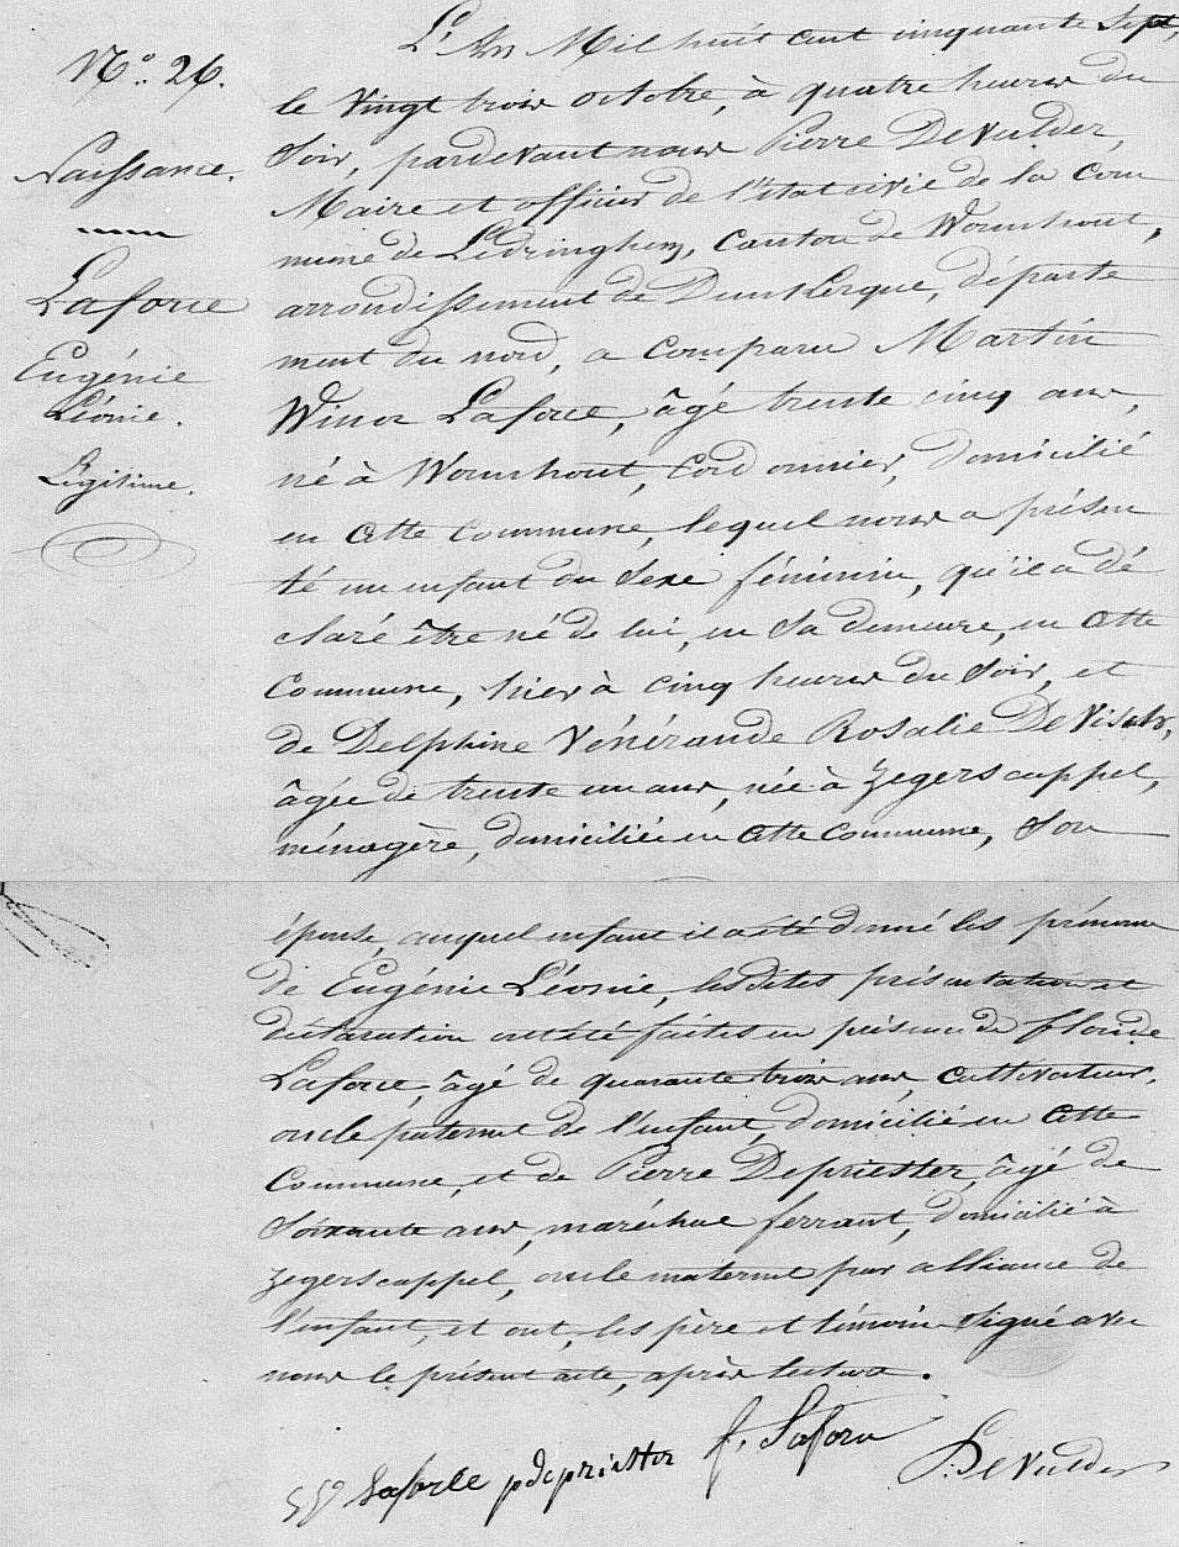 N.º 26.
Naissance.
Laforce
Eugénie
Léonie.
Légitime.
L'An Mil huit cent cinquante sept,
le vingt trois octobre, à quatre heures du
soir, pardevant nous Pierre DeVulder,
Maire et officier de l'état civil de la com
mune de Ledringhem, Canton de Wormhout,
arrondissement de Dunkerque, départe
ment du nord, a comparu Martin
Winoc Laforce, âgé trente cinq ans,
né à Wormhout, Cordonnier, domicilié
en cette commune, lequel nous a présen
té un enfant du sexe féminin, qu'il a dé
claré être né de lui, en sa demeure, en cette
Commune, hier à cinq heures du soir, et
de Delphine Vénérande Rosalie DeVisch,
âgée de trente un ans, née à Zegerscappel,
ménagère, domiciliée en cette commune, son
épouse, auquel enfant il a été donné les prénoms
de Eugénie Léonie, les dites présentation et
déclaration ont été faites en présence de floride
Laforce, âgé de quarante trois ans, cultivateur,
oncle paternel de l'enfant, domicilié en cette
Commune, et de Pierre Depriester, âgé de
soixante ans, maréchal ferrant, domicilié à
Zegerscappel, oncle maternel par alliance de
l'enfant, et ont, les père et témoins signé avec
nous le présent acte, après lecture.
Laforce pdepriester f. Laforce
P. DeVulder